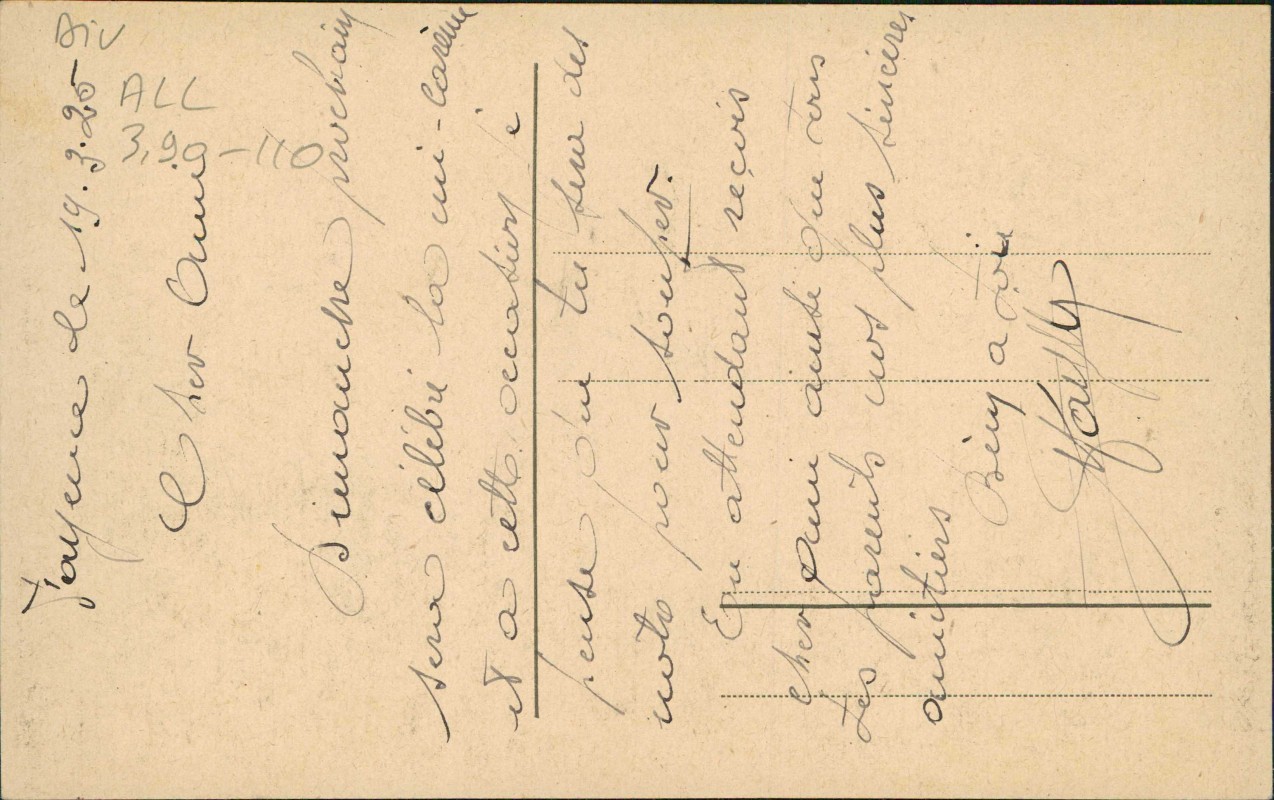 Div
ALL
3,90-110
le 19.3.25
Cher Ami
Dimanche prochain
sera célébré la mi-carème
et a cette occation, je
pense que tu sera des
nots pour souper.
En attendant reçois
cher ami ainsi que tous
tes parents nos plus sincères
amitiers
Bien a toi